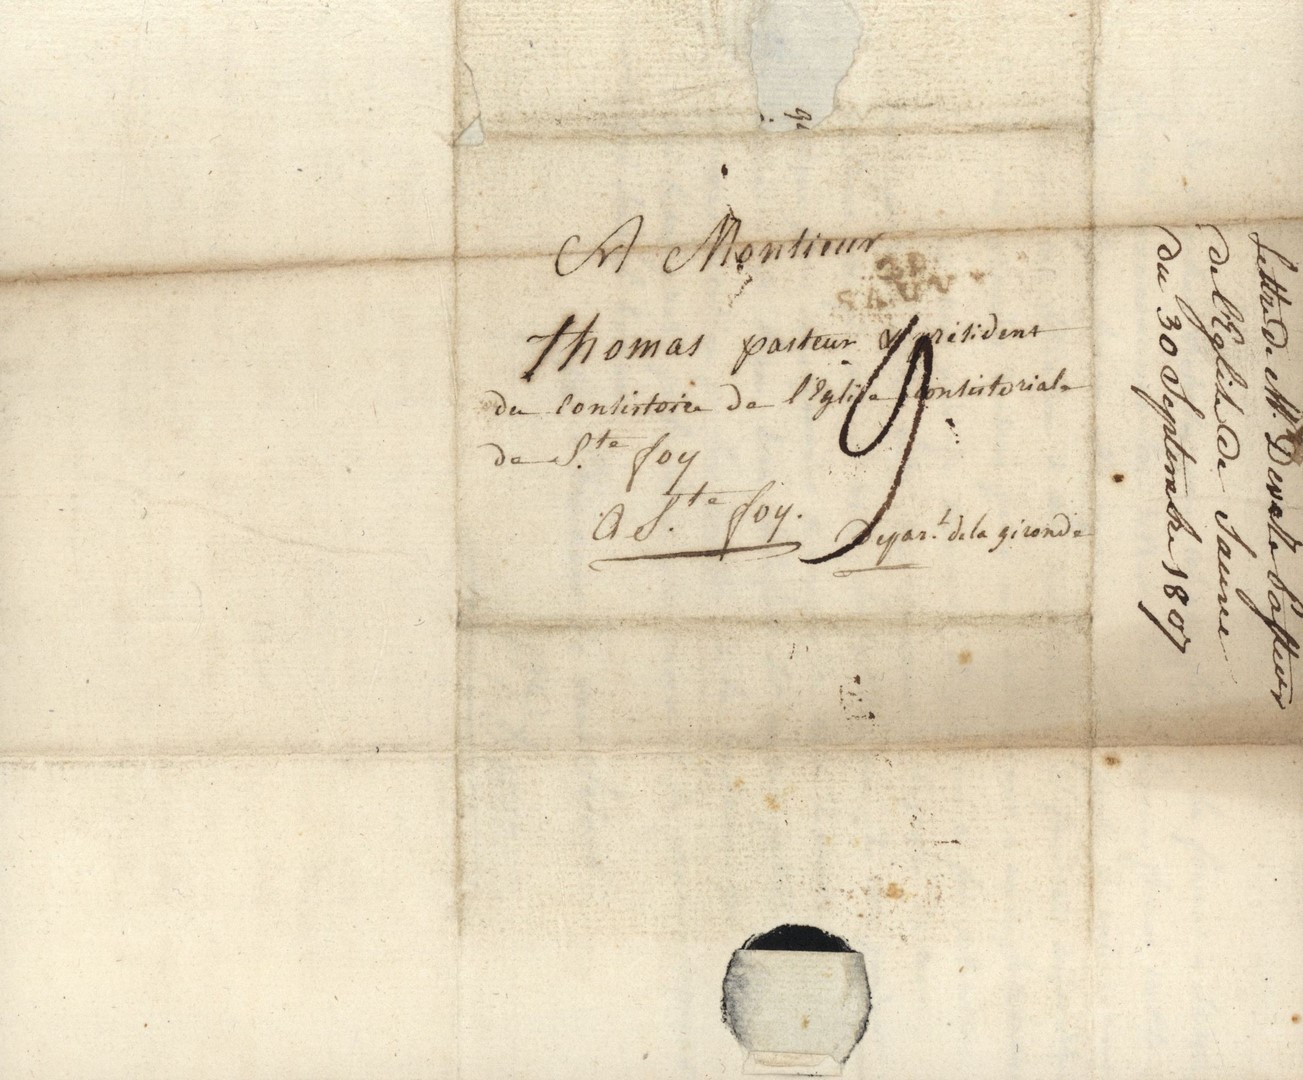 A Monsieur
Thomas pasteur & président
du Consistoire de l'Eglise Consistoriale
de S.te foy
A S.te foy. Depar.t de la gironde
30
SAUV
Lettre de Mr. Devate Pasteur
de l'Eglise de Sauve
du 30 Septembre 1807